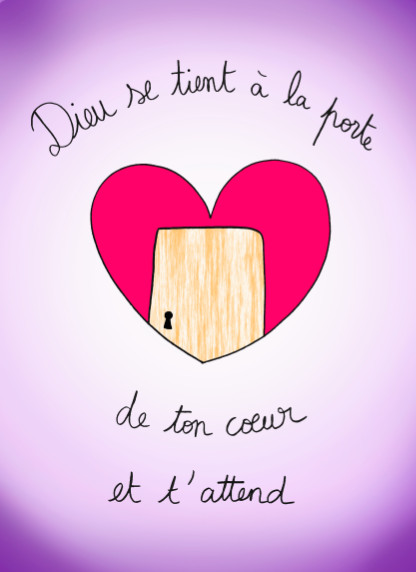 Dieu se tient à la porte
de ton cœur
et t'attend